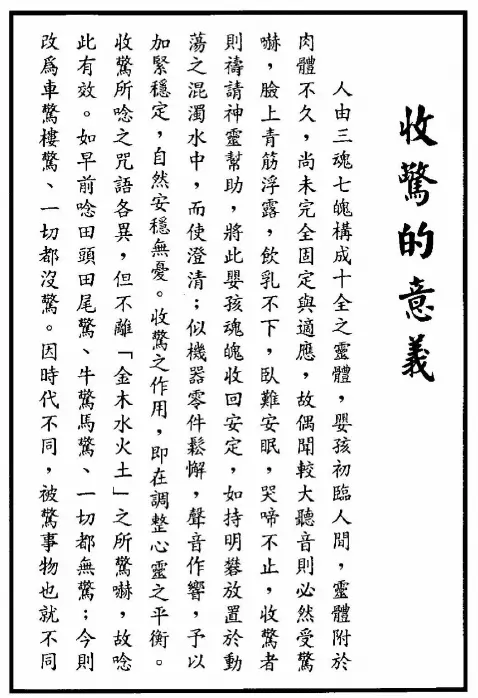 收驚的意義
人由三魂七魄構成十全之靈體，嬰孩初臨人間，靈體附於
肉體不久，尚未完全固定與適應，故偶聞較大聽音則必然受驚
嚇，臉上青筋浮露，飲乳不下，臥難安眠，哭啼不止，收驚者
則禱請神靈幫助，將此嬰孩魂魄收回安定，如持明礬放置於動
蕩之混濁水中，而使澄清；似機器零件鬆懈，聲音作響，予以
加緊穩定，自然安穩無憂。收驚之作用，即在調整心靈之平衡。
收驚所唸之咒語各異，但不離「金木水火土」之所驚嚇，故唸
此有效。如早前唸田頭田尾驚、牛驚馬驚、一切都無驚；今則
改爲車驚樓驚、一切都沒驚。因時代不同，被驚事物也就不同